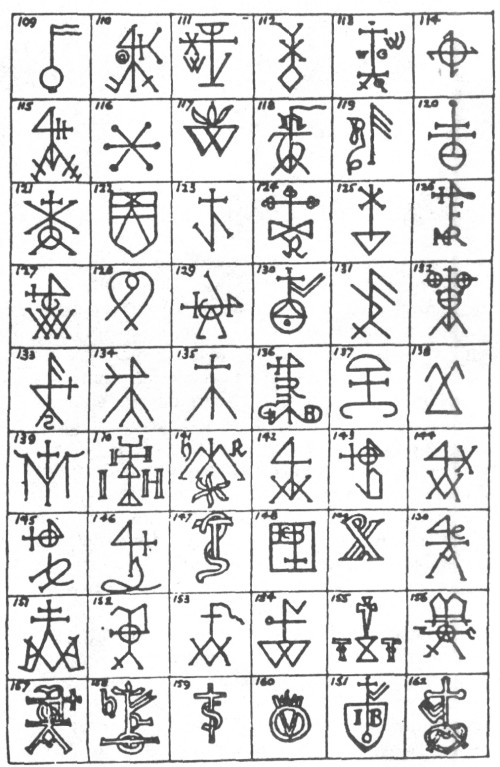 109 110 111 112 113 114
W
115 116 117 118 119 120
121 122 123 124 125 126
R
M R
127 128 129 130 131 132
133 134 135 136 137 138
S B
139 140 141 142 143 144
R
I H
145 146 147 148 150
151 152 153 154 155 156
T T
157 158 159 160 162
V I B